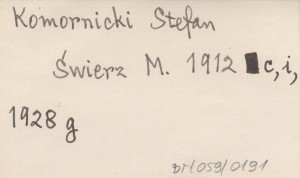 Komornicki Stefan
Świerz M. 1912 c, i,
1928 g
DT/059/0191